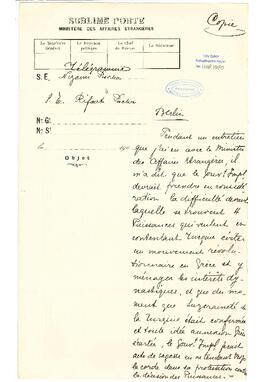 SUBLIME PORTE
MINISTÈRE DES AFFAIRES ÉTRANGÈRES
Copie
Le Secrétaire Général
Le Directeur politique
Le Chef du Bureau
Le Rédacteur
Télégramme
S. E. Nizami Pacha
S. E. Rifaat Pacha
Berlin
N: G:
N: S:
Objet
Pendant un entretien
que j'ai eu avec le Ministre
des Affaires étrangères, il
m'a dit que le Gouv. Impl.
devrait prendre en considé-
ration la difficulté devant
laquelle se trouvent 4
Puissances qui veulent en
contentant Turquie éviter
un mouvement révolu-
tionnaire en Grèce et y
ménager les intérêts dy-
nastiques, et que du mo-
ment que Suzeraineté de
la Turquie était confirmée
et toute idée annexion
écartée, le Gouv. Impl. ferait
acte de sagesse en ne tendant
la corde dans sa protestation contre
la décision des Puissances.